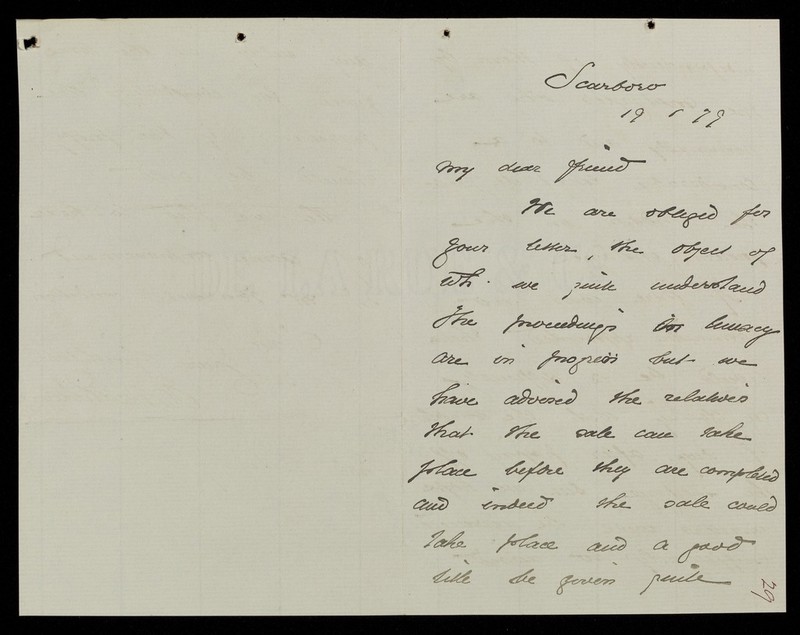 Scarboro
19 5 79
My dear friend
We are obliged for
your letter, the object of
wh. we quite understand
The proceedings in lunacy
are in progress but we
have advised the relatives
that the sale can take
place before they are completed
and indeed the sale could
take place and a good
title be given quite
29